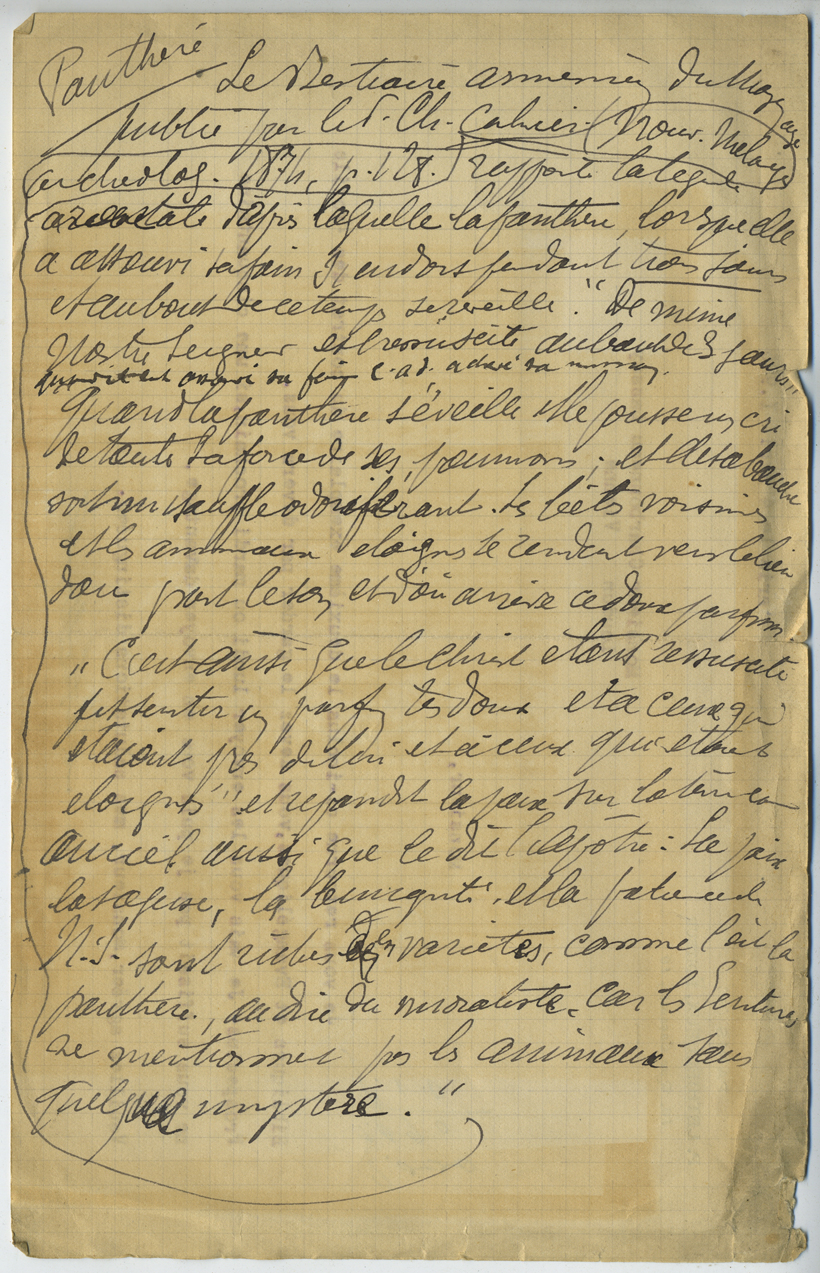 Panthère
Le Bestiaire arménien du Moyen age
publié par le P. Ch. Cahier (Nouv. Mélanges
archéolog. 1874, p. 128.) rapporte la légende
d'après laquelle la panthère, lorsqu'elle
a assouvi sa faim s'endors pendant trois jours
et au bout de ce temps se reveille. "De même
Nostre Seigneur est ressuscité au bout de 3 jours"
assouvi sa faim c.a.d. achevé sa mission.
Quand la panthère s'éveille elle pousse un cri
de toute la force de ses poumons ; et de sa bouche
sort un souffle odoriférant. Les bêtes voisines
et les animaux eloignés se rendent vers le lieu
d'ou part le son et d'où arrive ce doux parfum.
"C'est ainsi que le Christ étant ressuscité
fit sentir un parfum très doux et a ceux qui
étaient près de lui et à ceux qui étant
eloignés" et répandit la paix sur la terre et
au ciel aussi que le dit l'apôtre : La paix
la sagesse, la benignité, et la patience de
N.S. sont riches de variétés, comme l'est la
panthère, au dire du moraliste, car les Ecritures
ne mentionnent pas les animaux sans
quelque mystère."